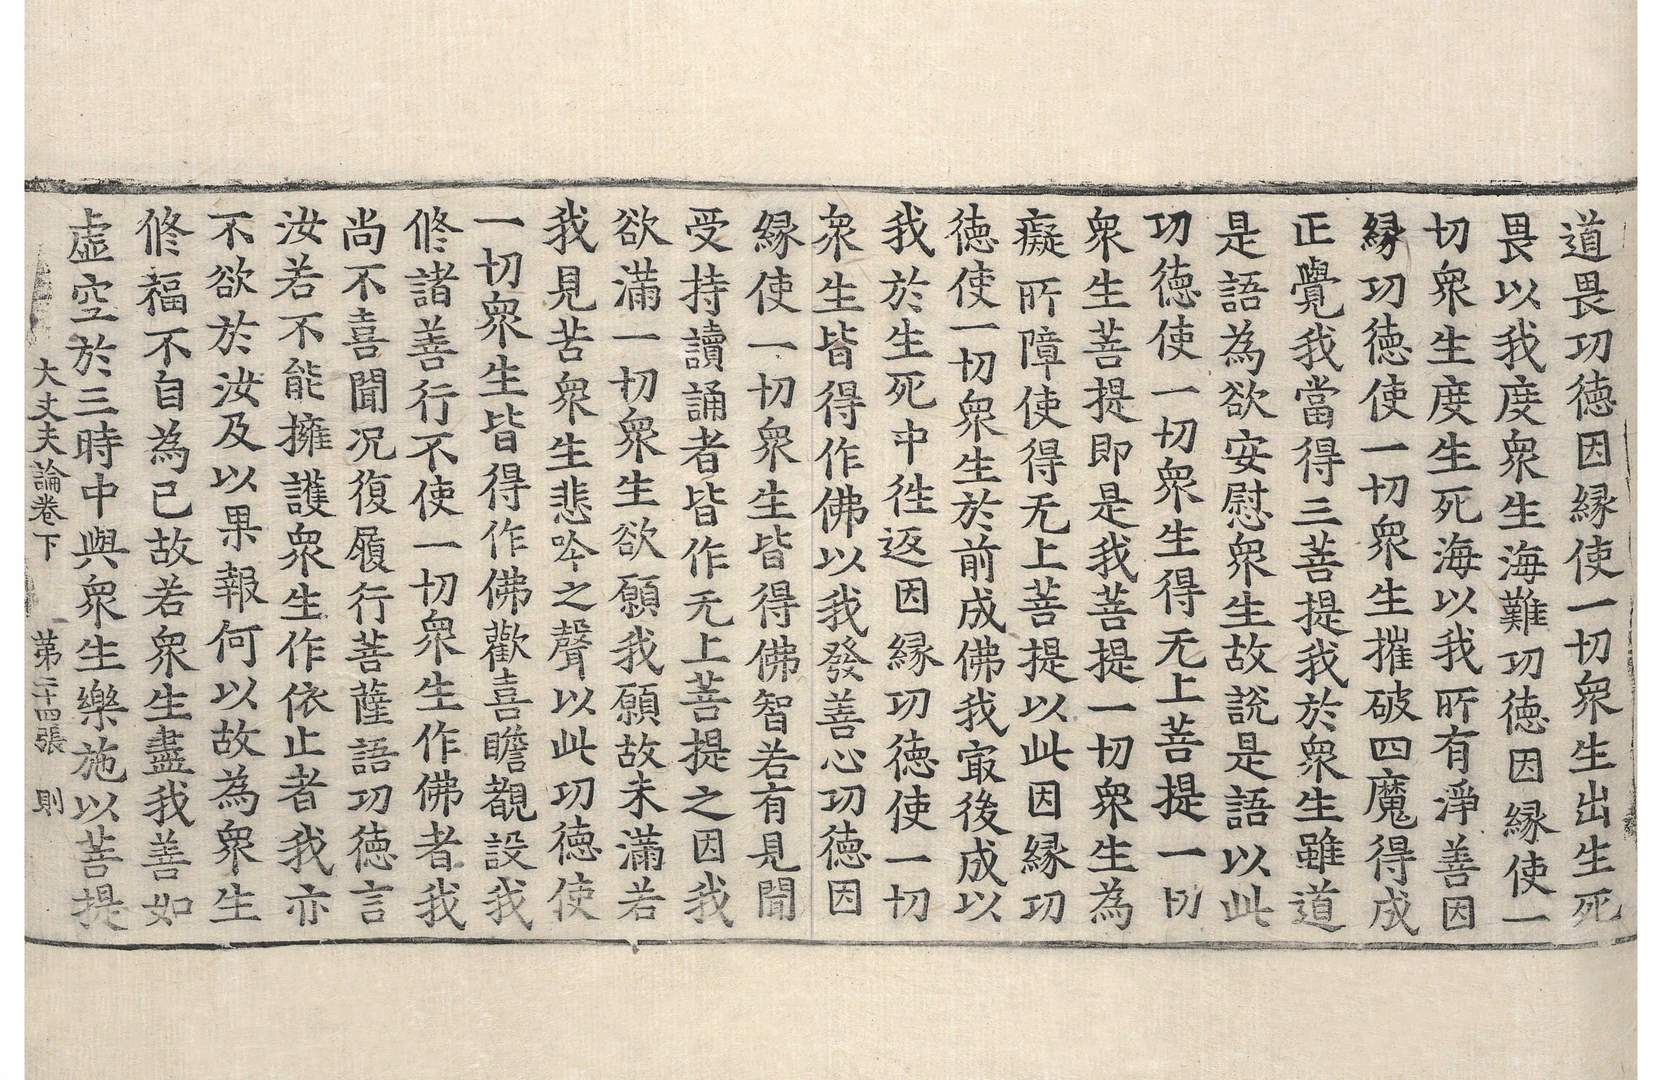 道畏功德因緣使一切衆生出生死
畏以我度衆生海難功德因緣使一
切衆生度生死海以我所有淨善因
緣功德使一切衆生摧破四魔得成
正覺我當得三菩提我於衆生雖道
是語為欲安慰衆生故說是語以此
功德使一切衆生得无上菩提一切
衆生菩提即是我菩提一切衆生為
癡所障使得无上菩提以此因緣功
德使一切衆生於前成佛我㝡後成以
我於生死中往返因緣功德使一切
衆生皆得作佛以我發善心功德因
緣使一切衆生皆得佛智若有見聞
受持讀誦者皆作无上菩提之因我
欲滿一切衆生欲願我願故未滿若
我見苦衆生悲吟之聲以此功德使
一切衆生皆得作佛歡喜瞻覩設我
修諸善行不使一切衆生作佛者我
尚不喜聞况復履行菩薩語功德言
汝若不能擁護衆生作依止者我亦
不欲於汝及以果報何以故為衆生
修福不自為己故若衆生盡我善如
虛空於三時中與衆生樂施以菩提
大丈夫論卷下　第二十四張　則